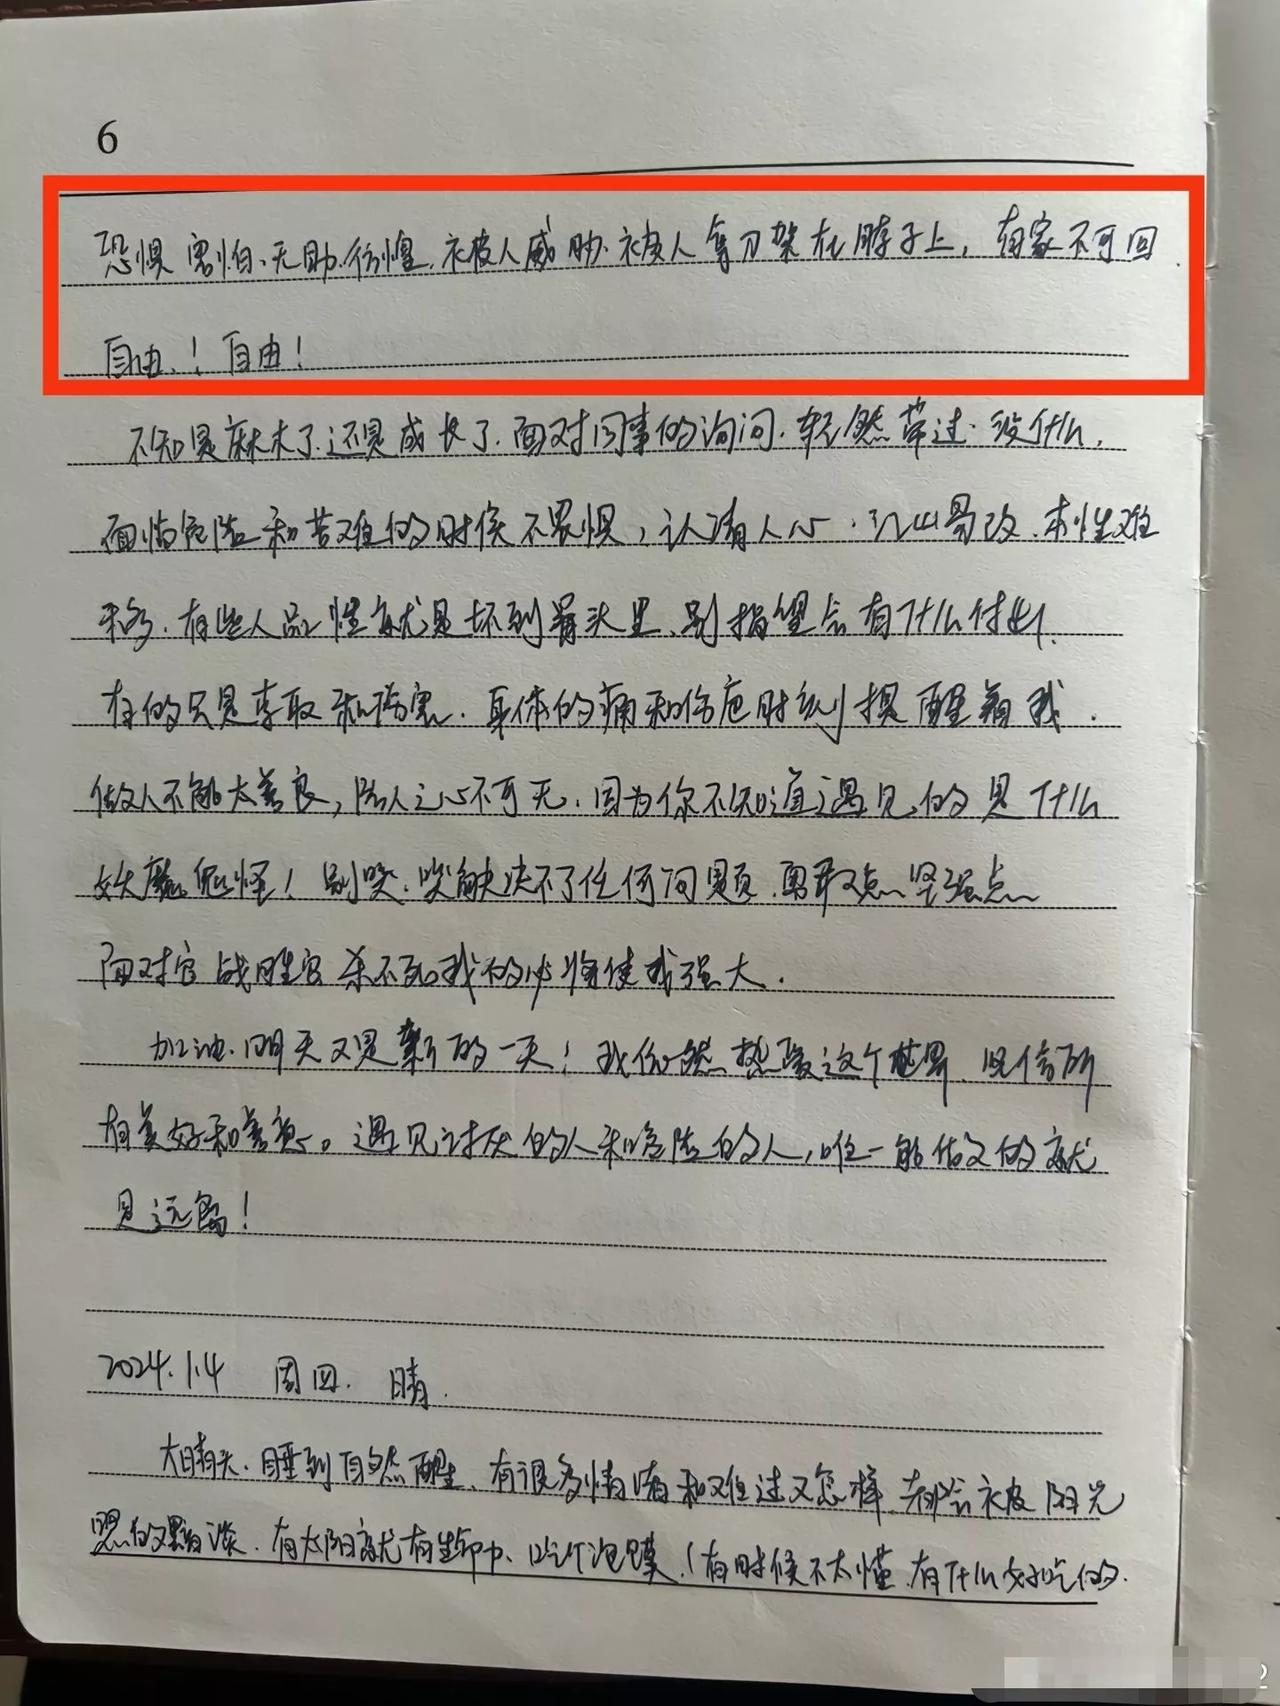 6
恐惧、害怕、无助、彷惶、被人威胁、被人拿刀架在脖子上,有家不可回
自由、!自由!
不知是麻木了、还是成长了、面对同事的询问、轻然带过、没什么、
面临危险和苦难的时候不畏惧,认清人心、江山易改、本性难
移、有些人品性就是坏到骨头里、别指望会有什么付出、
有的只是索取和伤害、身体的痛和伤疤时刻提醒着我、
做人不能太善良,防人之心不可无、因为你不知道遇见的是什么
妖魔鬼怪!别哭、哭解决不了任何问题、勇敢点、坚强点
面对它战胜它杀不死我的必将使我强大、
加油、明天又是新的一天!我依然热爱这个世界、坚信所
有美好和善意。遇见讨厌的人和危险的人,唯一能做的就
是远离!
2024.1.4 周四. 晴.
大晴天、睡到自然醒、有很多情绪和难过又怎样 都会被阳光
照的黯淡、有太阳就有生命力、吃个泡馍、(有时候不太懂、有什么好吃的.
2